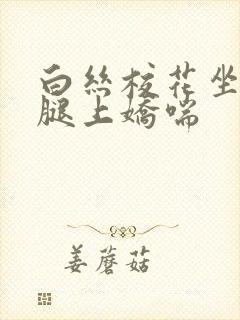 白丝校花坐
腿上嬌喘
姜蘑菇